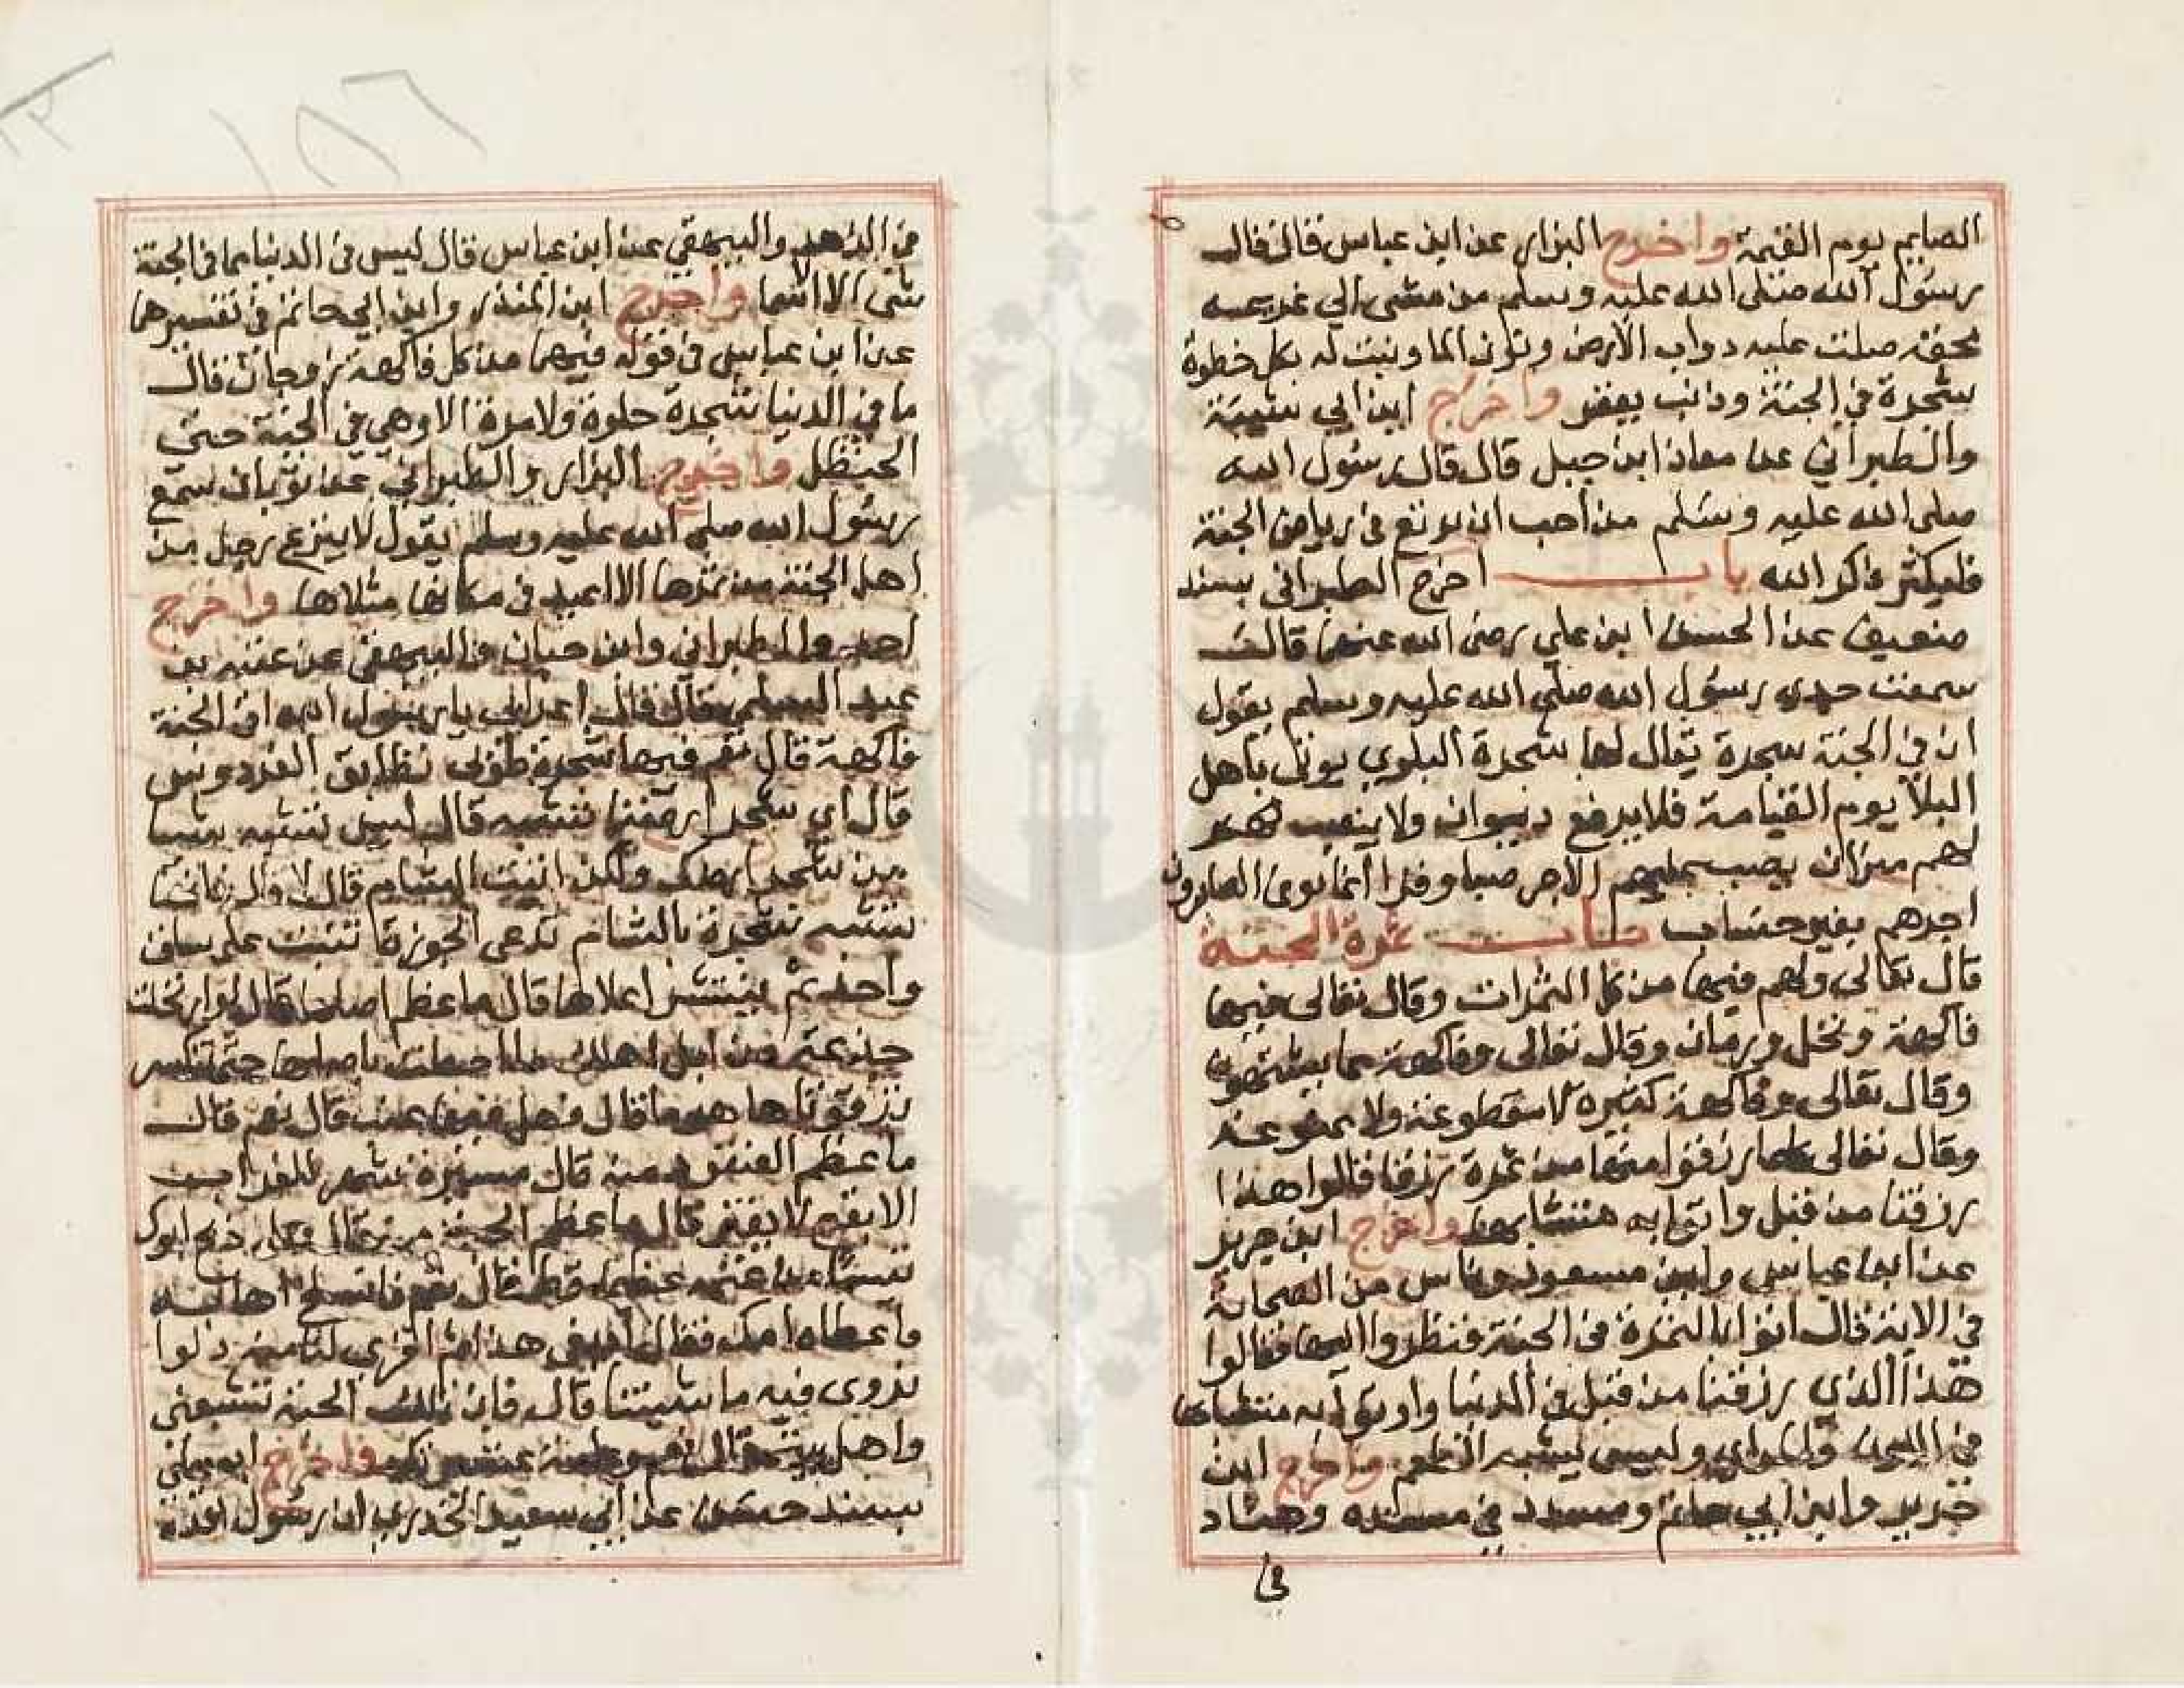 الصايم يوم القيمة واخرج البزار عن ابن عباس قال قال
رسول الله صلى الله عليه وسلم من مشى الي غريمه
بحقه صلت عليه دواب الارض ونون الما ونبت له بكل خطوة
شجرة في الجنة وذنب يغفر واخرج ابن ابي شيبة
والطبراني عن معاذ ابن جبل قال قال رسول الله
صلى الله عليه وسلم من أحب ان يرتع في رياض الجنة
فليكثر ذكر الله باب اخرج الطبراني بسند
ضعيف عن الحسن ابن علي رضى الله عنهما قال
سمعت جدى رسول الله صلى الله عليه وسلم يقول
ان في الجنة شجرة يقال لها شجرة البلوي يوتى باهل
البلا يوم القيامة فلا يرفع ديوان ولا ينصب لهم
لهم ميزان يصب عليهم الاجر صبا وقرا انما يوفى الصابرون
اجرهم بغير حساب باب ثمرة الجنة
قال تعالى ولهم فيها من كل الثمرات وقال تعالى فيها
فاكهة ونخل ورمان وقال تعالى وفاكهة مما يشتهون
وقال تعالى وفاكهة كثيرة لا مقطوعة ولا ممنوعة
وقال تعالى كلما رزقوا منها من ثمرة رزقا قالوا هذا
رزقنا من قبل واتوا به متشابها واخرج ابن جرير
عن ابن عباس وابن مسعود وناس من الصحابة
في الاية قال اتوا بالثمرة في الجنة فنظروا اليها فقالوا
هذا الذي رزقنا من قبل في الدنيا واوتوا به متشابها
في اللون والمراي وليس يشبه الطعم واخرج ابن
جرير وابن ابي حاتم ومسدد في مسنده وهناد
في
١٥٦
في الزهد والبيهقي عن ابن عباس قال ليس في الدنيا مما في الجنة
شى الا الاسما واخرج ابن المنذر وابن ابي حاتم في تفسيرهما
عن ابن عباس في قوله فيهما من كل فاكهة زوجان قال
ما في الدنيا شجرة حلوة ولا مرة الا وهي في الجنة حتى
الحنظل واخرج البزار والطبراني عن ثوبان سمع
رسول الله صلى الله عليه وسلم يقول لا ينزع رجل من
اهل الجنة من ثمرها الا اعيد في مكانها مثلاها واخرج
احمد والطبراني وابن حبان والبيهقي عن عتبه بن
عبد السلمي قال قال اعرابي يا رسول الله افي الجنة
فاكهة قال نعم فيها شجرة طوبى تطابق الفردوس
قال اي شجر ارضنا تشبه قال ليس تشبه شيا
من شجر ارضك ولكن اتيت الشام قال لا قال فانها
تشبه شجرة بالشام تدعى الجوزة تنبت على ساق
واحد ثم ينتشر اعلاها قال ما عظم اصلها قال لو ارتحلت
جذعة من ابل اهلك ما احطت باصلها حتى تنكسر
ترقوتاها هرما قال فهل فيها عنب قال نعم قال
ما عظم العنقود منه قال مسيرة شهر للغراب
الابقع لا يفتر قال ما عظم الحبة منه قال هل ذبح ابوك
تيسا من غنمه عظيما قط قال نعم فانسلخ اهابه
فاعطاه امك فقال ادبغى هذا ثم افري لنا منه دلوا
نروى فيه ماشيتنا قال فان تلك الحبة تشبعنى
واهل بيتى قال نعم وعامة عشيرتك واخرج ابو يعلى
بسند حسن عن ابي سعيد الخدري ان رسول الله